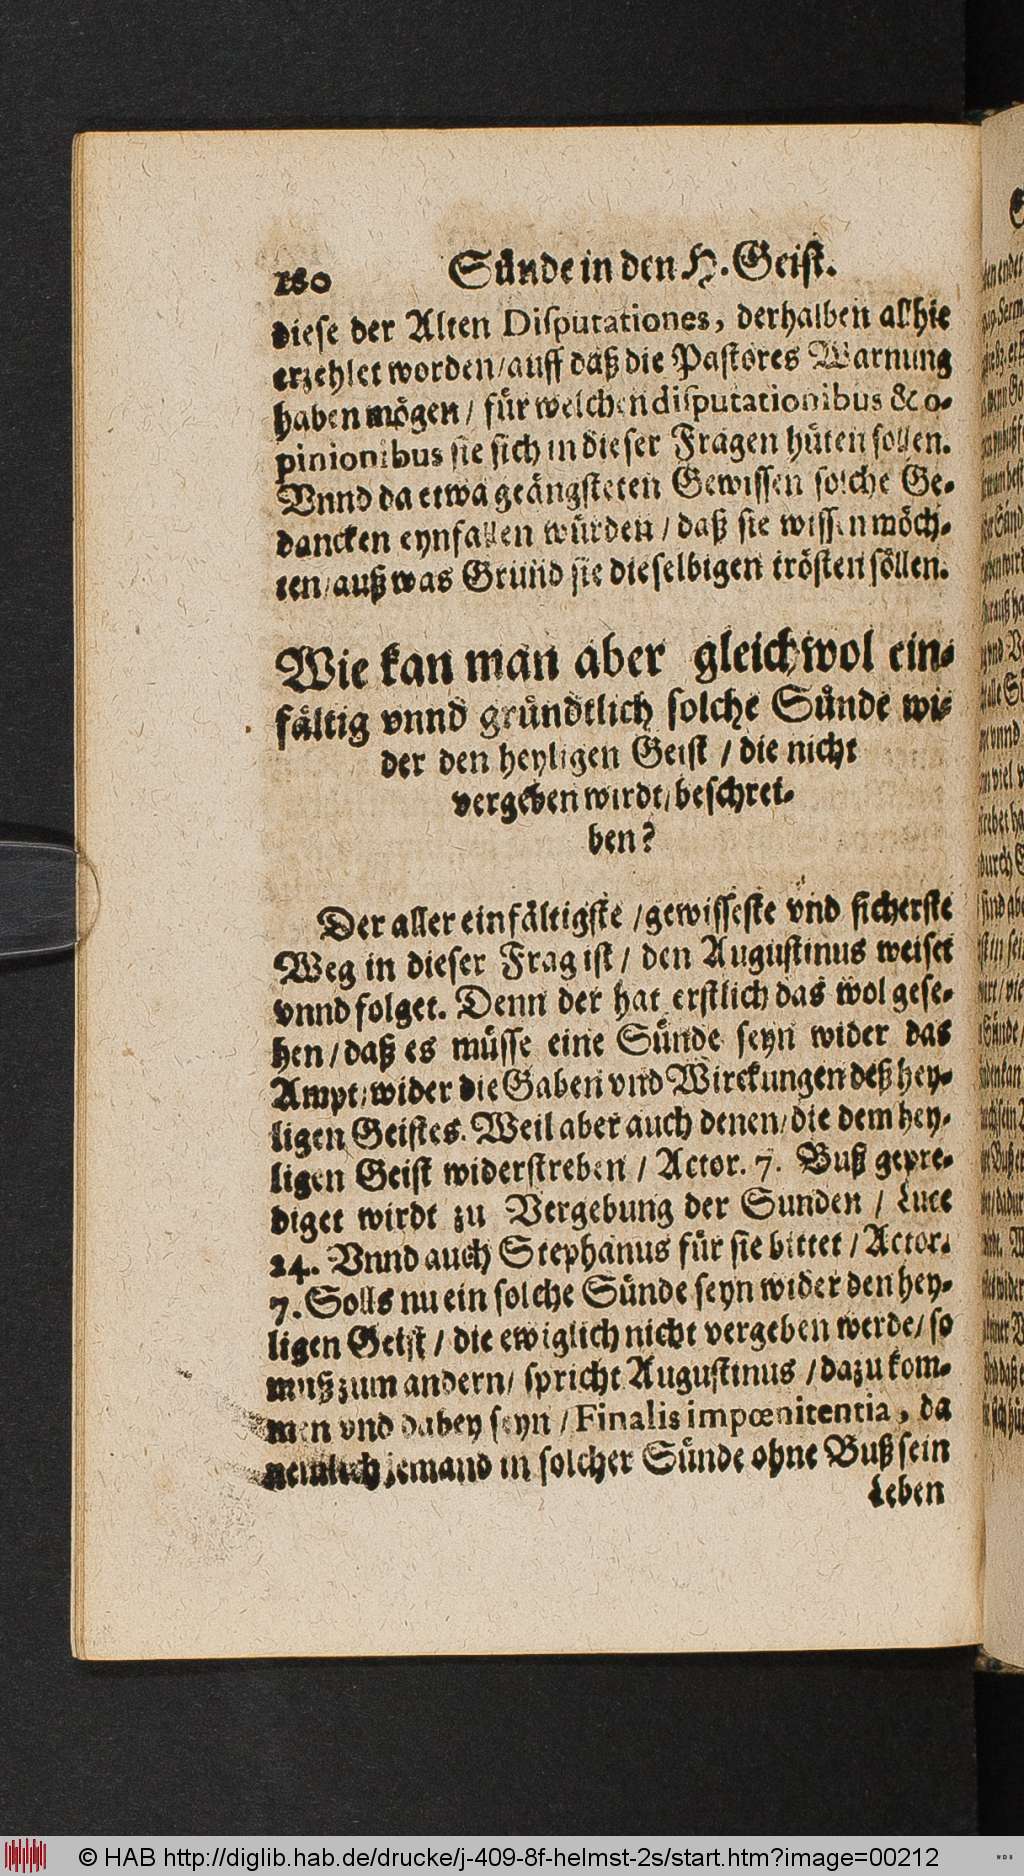 180 Sünde in den H. Geist.
diese der Alten Disputationes, derhalben allhie
erzehlet worden/auff daß die Pastores Warnung
haben mögen/ für welchen disputationibus & o-
pinionibus sie sich in dieser Fragen hüten sollen.
Vnnd da etwa geängsteten Gewissen solche Ge-
dancken eynfallen würden/daß sie wissen möch-
ten/auß was Grund sie dieselbigen trösten söllen.
Wie kan man aber gleichwol ein-
fältig vnnd gründtlich solche Sünde wi-
der den heyligen Geist / die nicht
vergeben wirdt/beschrei-
ben?
Der aller einfältigste /gewisseste vnd sicherste
Weg in dieser Frag ist/ den Augustinus weiset
vnnd folget. Denn der hat erstlich das wol gese-
hen/daß es müsse eine Sünde seyn wider das
Ampt/wider die Gaben vnd Wirckungen deß hey-
ligen Geistes. Weil aber auch denen/die dem hey-
ligen Geist widerstreben / Actor. 7. Buß gepre-
diget wirdt zu Vergebung der Sunden / Luce
24. Vnnd auch Stephanus für sie bittet /Actor.
7. Solls nu ein solche Sünde seyn wider den hey-
ligen Geist / die ewiglich nicht vergeben werde/so
muß zum andern/ spricht Augustinus /dazu kom-
men vnd dabey seyn /Finalis impœnitentia, da
nemlich jemand in solcher Sünde ohne Buß sein
Leben
© HAB http://diglib.hab.de/drucke/j-409-8f-helmst-2s/start.htm?image=00212